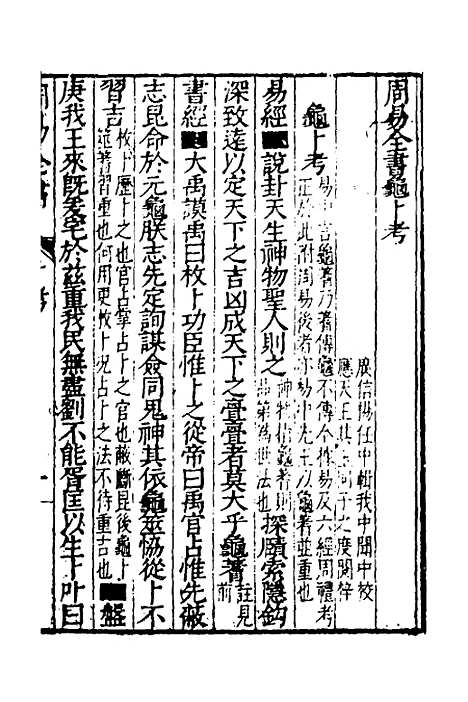 周易全書龜卜考
廣信楊任中輯我中閱中校
應天王其玉何子之度閱梓
龜卜考
易中言龜蓍乃蓍傳龜不傳今按易及六經周禮考
正於此附周易後者示易中先王以龜蓍並重也
易經說卦天生神物聖人則之神物指龜蓍則此第為世法也探賾索隱鈎
深致遠以定天下之吉凶成天下之亹亹者莫大乎龜蓍註見前
書經大禹謨禹曰枚卜功臣惟卜之從帝曰禹官占惟先蔽
志昆命於元龜朕志先定詢謀僉同鬼神其依龜筮恊從卜不
習吉枚卜歷卜之也官占掌占卜之官也蔽斷昆後龜卜筮蓍習重也何用更枚卜况占卜之法不待重吉也盤
庚我王來既爰宅於茲重我民無盡劉不能胥匡以生卜叶曰